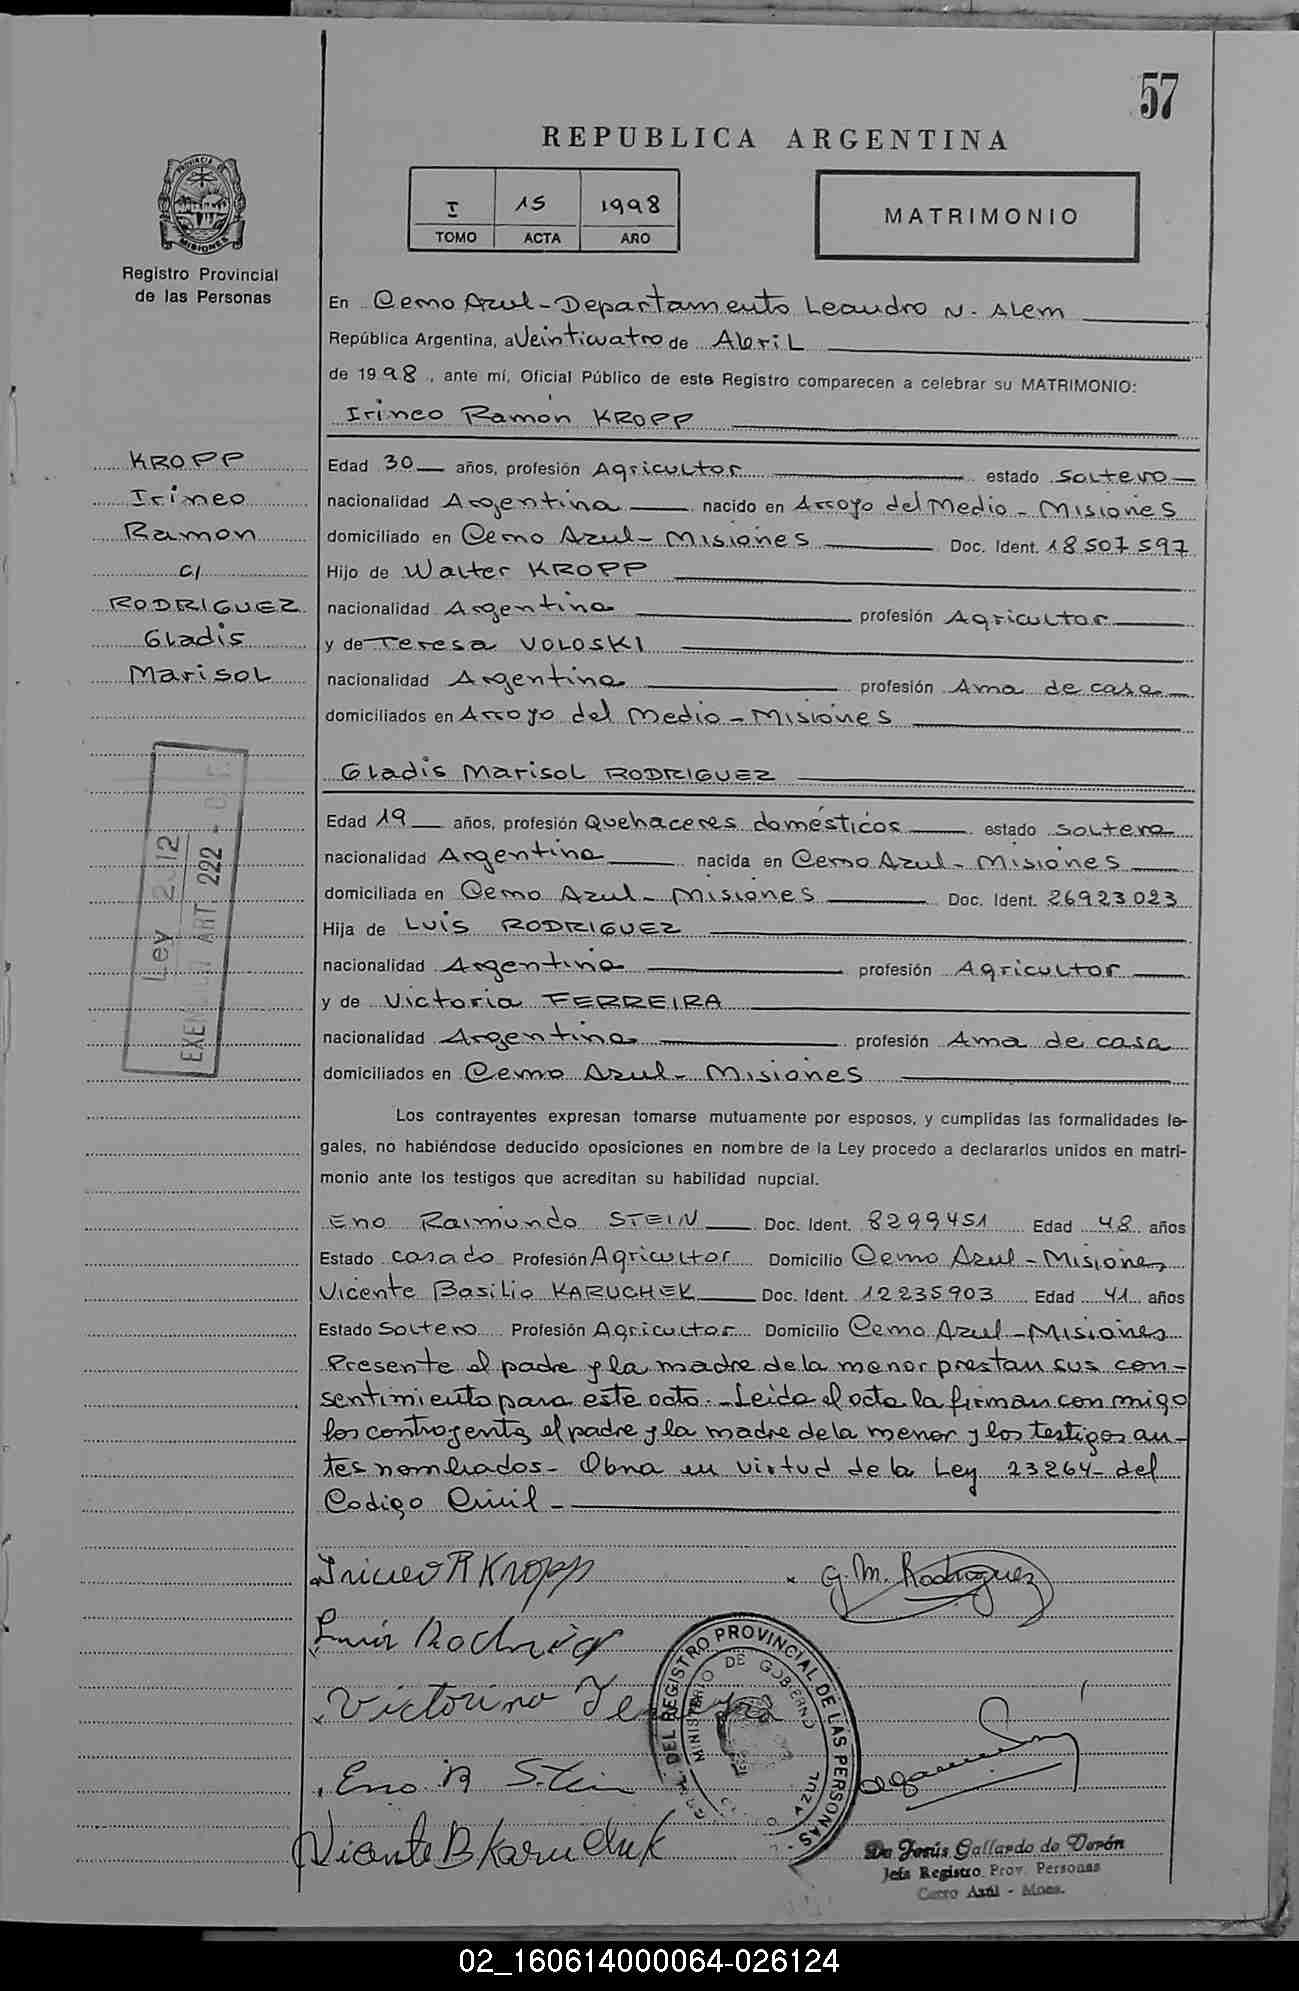 57
REPUBLICA ARGENTINA
I 15 1998
TOMO ACTA AÑO
MATRIMONIO
PROVINCIA DE
MISIONES
Registro Provincial
de las Personas
En Cerro Azul - Departamento Leandro N. Alem
República Argentina, a Veinticuatro de Abril
de 1998, ante mí, Oficial Público de este Registro comparecen a celebrar su MATRIMONIO:
Irineo Ramón KROPP
KROPP
Irineo
Ramon
c/
RODRIGUEZ
Gladis
Marisol
Edad 30 años, profesión Agricultor estado soltero
nacionalidad Argentina nacido en Arroyo del Medio - Misiones
domiciliado en Cerro Azul - Misiones Doc. Ident. 18507597
Hijo de Walter KROPP
nacionalidad Argentina profesión Agricultor
y de Teresa VOLOSKI
nacionalidad Argentina profesión Ama de casa
domiciliados en Arroyo del Medio - Misiones
Gladis Marisol RODRIGUEZ
Edad 19 años, profesión Quehaceres domésticos estado soltera
nacionalidad Argentina nacida en Cerro Azul - Misiones
domiciliada en Cerro Azul - Misiones Doc. Ident. 26923023
Hija de Luis RODRIGUEZ
nacionalidad Argentina profesión Agricultor
y de Victoria FERREIRA
nacionalidad Argentina profesión Ama de casa
domiciliados en Cerro Azul - Misiones
Ley
ART. 222 -
Los contrayentes expresan tomarse mutuamente por esposos, y cumplidas las formalidades le-
gales, no habiéndose deducido oposiciones en nombre de la Ley procedo a declararlos unidos en matri-
monio ante los testigos que acreditan su habilidad nupcial.
Eno Raimundo STEIN Doc. Ident. 8299451 Edad 48 años
Estado casado Profesión Agricultor Domicilio Cerro Azul - Misiones
Vicente Basilio KARUCHEK Doc. Ident. 12235903 Edad 41 años
Estado Soltero Profesión Agricultor Domicilio Cerro Azul - Misiones
Presente el padre y la madre de la menor prestan sus con-
sentimiento para este acto. - Leida el acta la firman con migo
los contrayentes, el padre y la madre de la menor y los testigos an-
tes nombrados - Obra en virtud de la Ley 23264 - del
Codigo Civil -
Irineo R Kropp
G. M. Rodriguez
Luis
Victorina
Eno R Stein
Vicente B Karuchek
DEL REGISTRO PROVINCIAL DE LAS PERSONAS -
MINISTERIO DE GOBIERNO
AZUL
De Jesús Gallardo de Verón
Jefa Registro Prov. Personas
Cerro Azul - Mnes.
02_160614000064-026124